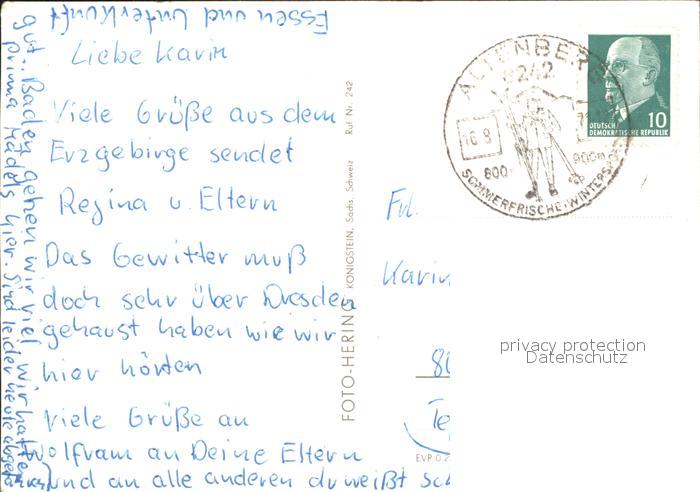 Liebe Karin
Viele Grüße aus dem
Erzgebirge sendet
Regina u. Eltern
Das Gewitter muß
doch sehr über Dresden
gehaust haben wie wir
hier hörten
Viele Grüße an
Wolfram an Deine Eltern
und an alle anderen du weißt sch
Essen und Unterkunft
gut. Baden gehen wir viel. Wir hatten
prima Mädels hier. Sind leider heute
FOTO-HERING KÖNIGSTEIN, Sächs. Schweiz Ruf Nr. 242
ALTENBERG
8242
16.8
800-
900m
SOMMERFRISCHE WINTERSP
DEUTSCHE
DEMOKRATISCHE REPUBLIK
10
Frl.
Karin
80
Te
EVP 0.2
privacy protection
Datenschutz